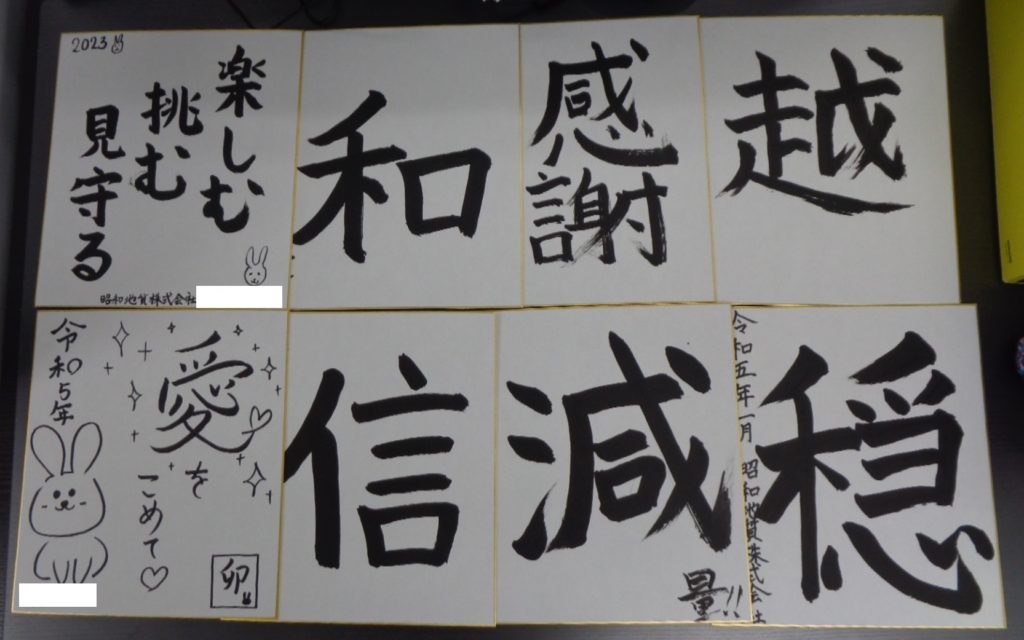 2023
楽しむ
挑む
見守る
昭和地質株式会社
和
感謝
越
令和5年
愛を
こめて♡
卯
信
減
量!!
令和五年一月 昭和地質株式会社
穏